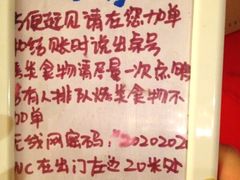 方便起见请在您加单
和结账时说出桌号
烤类食物请尽量一次点明
若有人排队烤类食物不
加单
无线网密码："2020202
WC在出门左边20米处